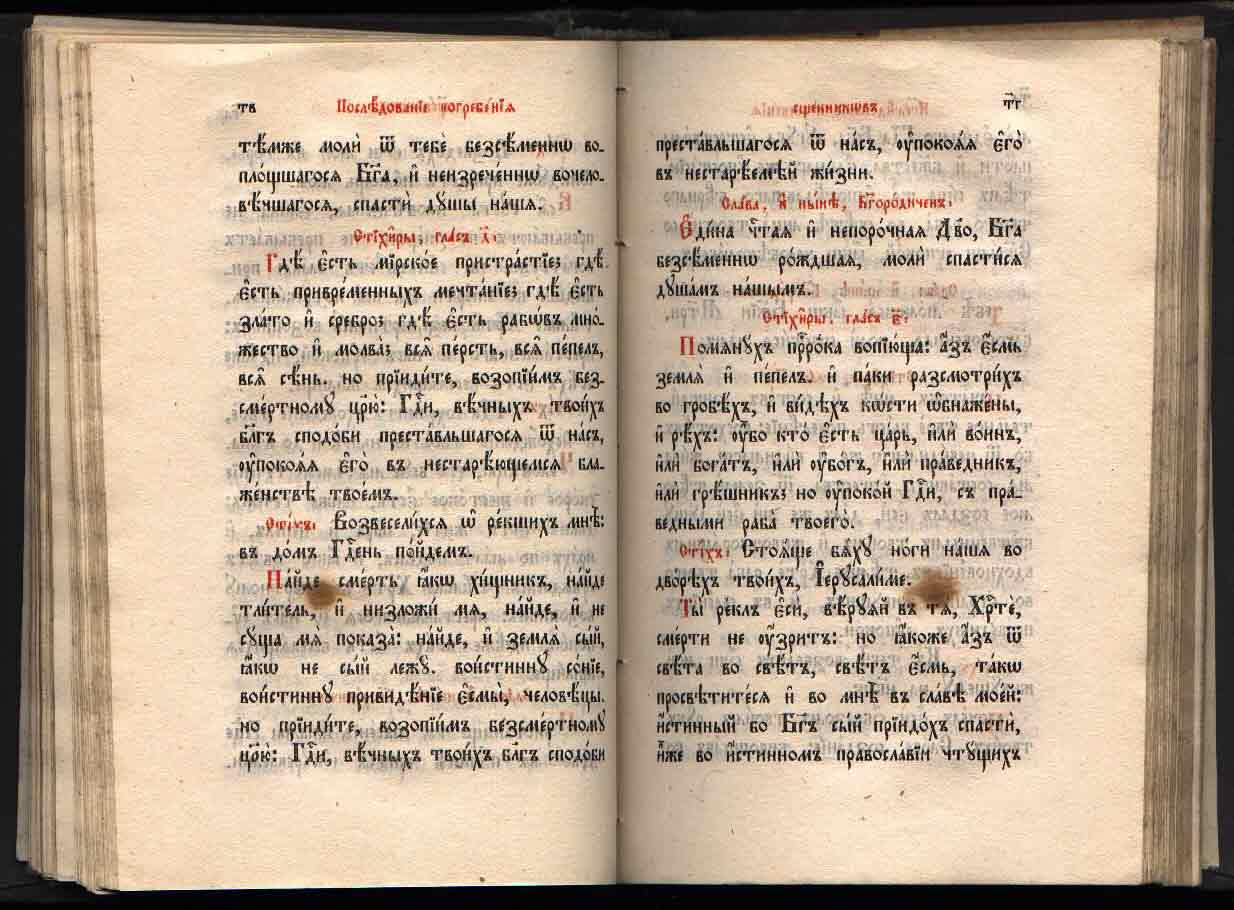 тв Послѣдованїе погребе́нїѧ
тѣ́мже молѝ ѿ тебѐ безсѣ́меннѡ во-
пло́щшагосѧ Бг҃а, и҆ неизрече́ннѡ вочело-
вѣ́чшагосѧ, спастѝ дꙋ́шы на́шѧ.
Стїхи̑ры, гла́съ і҃:
Гдѣ̀ є҆́сть мїрско́е пристра́стїе; гдѣ̀
є҆́сть привре́менныхъ мечта́нїе; гдѣ̀ є҆́сть
зла́то и҆ сребро̀; гдѣ̀ є҆́сть рабѡ́въ мно́-
жество и҆ молва̀; всѧ̑ пе́рсть, всѧ̑ пе́пелъ,
всѧ̑ сѣ́нь. но прїиди́те, возопїи́мъ без-
сме́ртномꙋ цр҃ю̀: Гдⷭ҇и, вѣ́чныхъ твои́хъ
бл҃гъ сподо́би преста́вльшагосѧ ѿ на́съ,
ᲂу҆покоѧ́ѧ є҆го̀ въ нестарѣ́ющемсѧ бла-
же́нствѣ твое́мъ.
Сті́хъ: Возвесели́хсѧ ѡ҆ ре́кшихъ мнѣ̀:
въ до́мъ Гдⷭ҇ень по́йдемъ.
На́йде сме́рть ꙗ҆́кѡ хи́щникъ, на́йде
тли́тель, и҆ низложи́ мѧ, на́йде, и҆ не
сꙋ́ща мѧ̀ показа̀: на́йде, и҆ землѧ̀ сы́й,
ꙗ҆́кѡ не сы́й лежꙋ̀. вои́стиннꙋ со́нїе,
вои́стиннꙋ привидѣ́нїе є҆смы̀, человѣ́цы.
но прїиди́те, возопїи́мъ безсме́ртномꙋ
цр҃ю̀: Гдⷭ҇и, вѣ́чныхъ твои́хъ бл҃гъ сподо́би
сщ҃е́нникѡвъ т҃г
преста́вльшагосѧ ѿ на́съ, ᲂу҆покоѧ́ѧ є҆го̀
въ нестарѣ́емѣй жи́зни.
Сла́ва, и҆ ны́нѣ, Бг҃оро́диченъ:
Є҆ди́на чⷭ҇таѧ и҆ непоро́чнаѧ Дв҃о, Бг҃а
безсѣ́меннѡ ро́ждшаѧ, молѝ спасти́сѧ
дꙋша́мъ на́шымъ.
Стїхи̑ры, гла́съ в҃:
Помѧнꙋ́хъ прⷪ҇ро́ка вопїю́ща: а҆́зъ є҆́смь
землѧ̀ и҆ пе́пелъ. и҆ па́ки разсмотри́хъ
во гробѣ́хъ, и҆ ви́дѣхъ кѡ́сти ѡ҆бнаже́ны,
и҆ рѣ́хъ: ᲂу҆̀бо кто̀ є҆́сть ца́рь, и҆лѝ во́инъ,
и҆лѝ бога́тъ, и҆лѝ ᲂу҆бо́гъ, и҆лѝ пра́ведникъ,
и҆лѝ грѣ́шникъ; но ᲂу҆поко́й Гдⷭ҇и, съ пра́-
ведными раба̀ твоего̀.
Сті́хъ: Стоѧ́ще бѧ́хꙋ но́ги на́шѧ во
дво́рѣхъ твои́хъ, І҆ерⷭ҇али́ме.
Ты̀ ре́клъ є҆сѝ, вѣ́рꙋѧй въ тѧ̀, Хрⷭ҇тѐ,
сме́рти не ᲂу҆́зритъ: но ꙗ҆́коже а҆́зъ ѿ
свѣ́та во свѣ́тъ, свѣ́тъ є҆́смь, та́кѡ
просвѣти́тесѧ и҆ во мнѣ̀ въ сла́вѣ мое́й:
и҆́стинный бо Бг҃ъ сы́й прїидо́хъ спастѝ,
и҆̀же во и҆́стинномъ правосла́вїи чтꙋ́щихъ